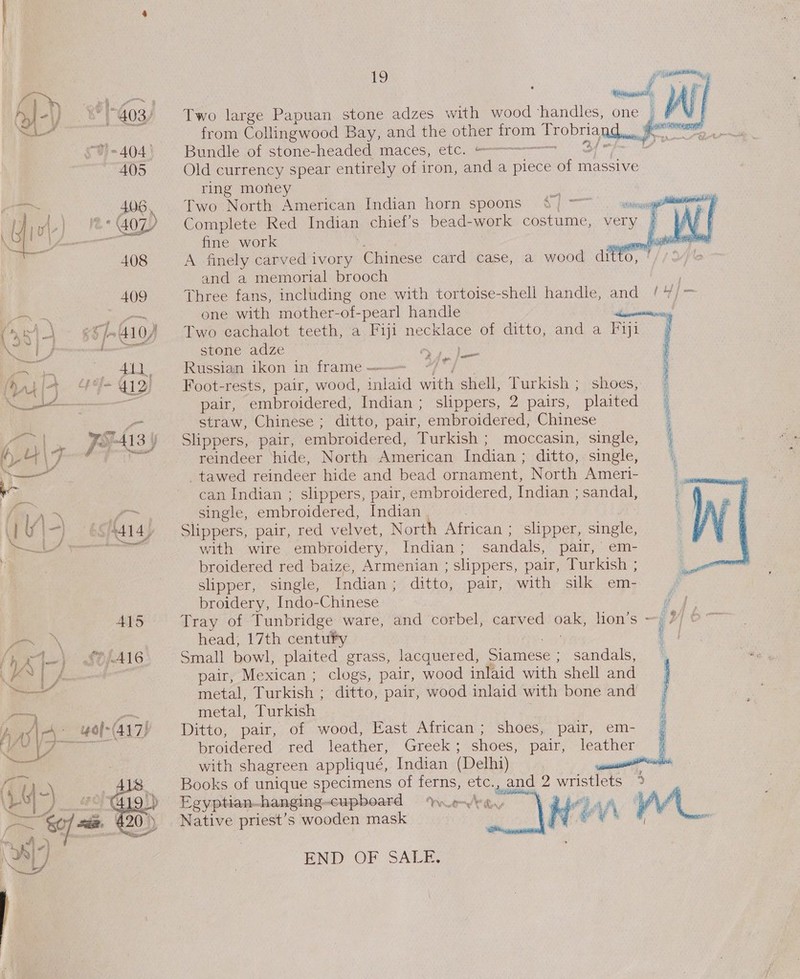 19
403 Two large Papuan stone adzes with wood handles, one
from Collingwood Bay, and the other from Trobriand
404 Bundle of stone-headed maces, etc.
405 Old currency spear entirely of iron, and a piece of massive
ring money
406 Two North American Indian horn spoons
407 Complete Red Indian chief's bead-work costume, very
fine work
408 A finely carved ivory Chinese card case, a wood ditto,
and a memorial brooch
409 Three fans, including one with tortoise-shell handle, and
one with mother-of-pearl handle
410 Two cachalot teeth, a Fiji necklace of ditto, and a Fiji
stone adze
411 Russian ikon in frame
412 Foot-rests, pair, wood, inlaid with shell, Turkish ; shoes,
pair, embroidered, Indian ; slippers, 2 pairs, plaited
straw, Chinese ; ditto, pair, embroidered, Chinese
413 Slippers, pair, embroidered, Turkish ; moccasin, single,
reindeer hide, North American Indian ; ditto, single,
tawed reindeer hide and bead ornament, North Ameri-
can Indian ; slippers, pair, embroidered, Indian ; sandal,
single, embroidered, Indian
414 Slippers, pair, red velvet, North African ; slipper, single,
with wire embroidery, Indian ; sandals, pair, em-
broidered red baize, Armenian ; slippers, pair, Turkish ;
slipper, single, Indian ; ditto, pair, with silk em-
broidery, Indo-Chinese
415 Tray of Tunbridge ware, and corbel, carved oak, lion's
head, 17th century
416 Small bowl, plaited grass, lacquered, Siamese ; sandals,
pair, Mexican ; clogs, pair, wood inlaid with shell and
metal, Turkish ; ditto, pair, wood inlaid with bone and
metal, Turkish
417 Ditto, pair, of wood, East African ; shoes, pair, em-
broidered red leather, Greek ; shoes, pair, leather
with shagreen appliqué, Indian (Delhi)
418 Books of unique specimens of ferns, etc., and 2 wristlets
419 Egyptian hanging cupboard
420 Native priest's wooden mask
END OF SALE.